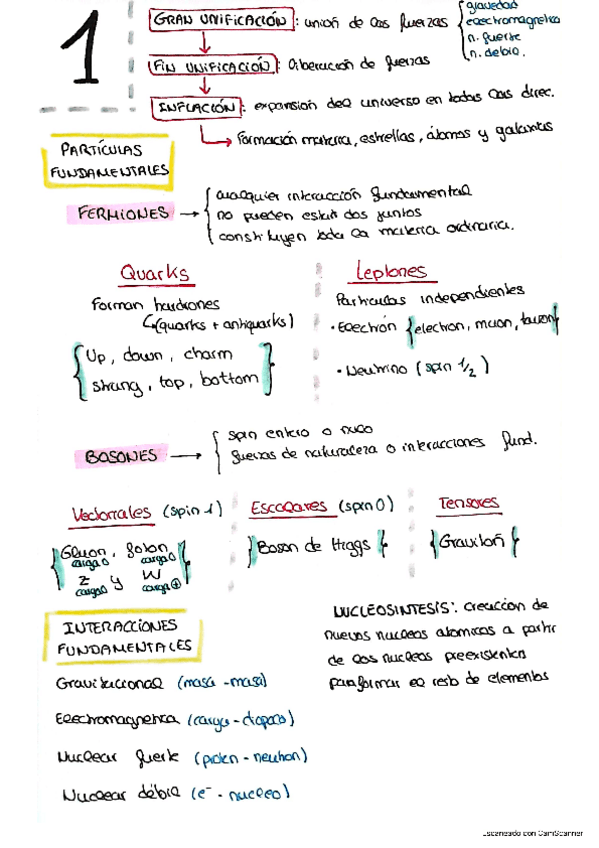 1
GRAN UNIFICACIÓN : unión de las fuerzas { gravedad
electromagnetica
n. fuerte
n. debil.
FIN UNIFICACIÓN : liberación de fuerzas
INFLACIÓN : expansión del universo en todas las direc.
Formación materia, estrellas, átomos y galaxias
PARTÍCULAS
FUNDAMENTALES
FERMIONES → cualquier interacción fundamental
no pueden estar dos juntos
constituyen toda la materia ordinaria.
Quarks
Forman hadrones
(quarks + antiquarks)
{ Up, down, charm
strang, top, bottom }
Leptones
Particulas independientes
• Electrón { electron, muon, tauon }
• Neutrino (spin 1/2)
BOSONES → spin entero o nulo
fuerzas de naturaleza o interacciones fund.
Vectoriales (spin 1)
{ Gluon, foton
carga 0 carga 0
Z y W }
carga 0 carga ⊕
Escalares (spin 0)
{ Boson de Higgs }
Tensores
{ Gravitón }
INTERACCIONES
FUNDAMENTALES
Gravitacional (masa - masa)
Electromagnetica (carga - )
Nuclear fuerte (proton - neutron)
Nuclear débil (e⁻ - nucleo)
NUCLEOSINTESIS: Creacion de
nuevos nucleos atomicos a partir
de los nucleos preexistentes
para formar el resto de elementos
Escaneado con CamScanner